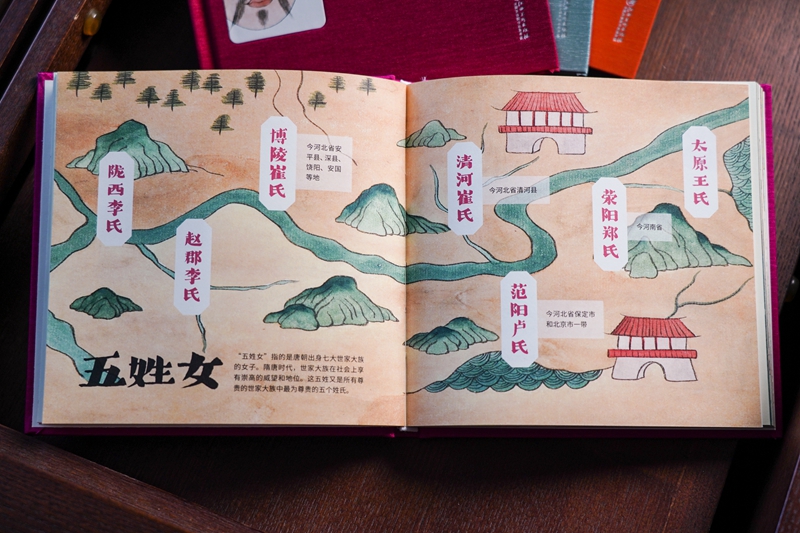 陇西李氏
赵郡李氏
博陵崔氏
今河北省安
平县、深县、
饶阳、安国
等地
五姓女
“五姓女”指的是唐朝出身七大世家大族
的女子。隋唐时代，世家大族在社会上享
有崇高的威望和地位。这五姓又是所有尊
贵的世家大族中最为尊贵的五个姓氏。
清河崔氏
今河北省清河县
范阳卢氏
今河北省保定市
和北京市一带
荥阳郑氏
今河南省
太原王氏